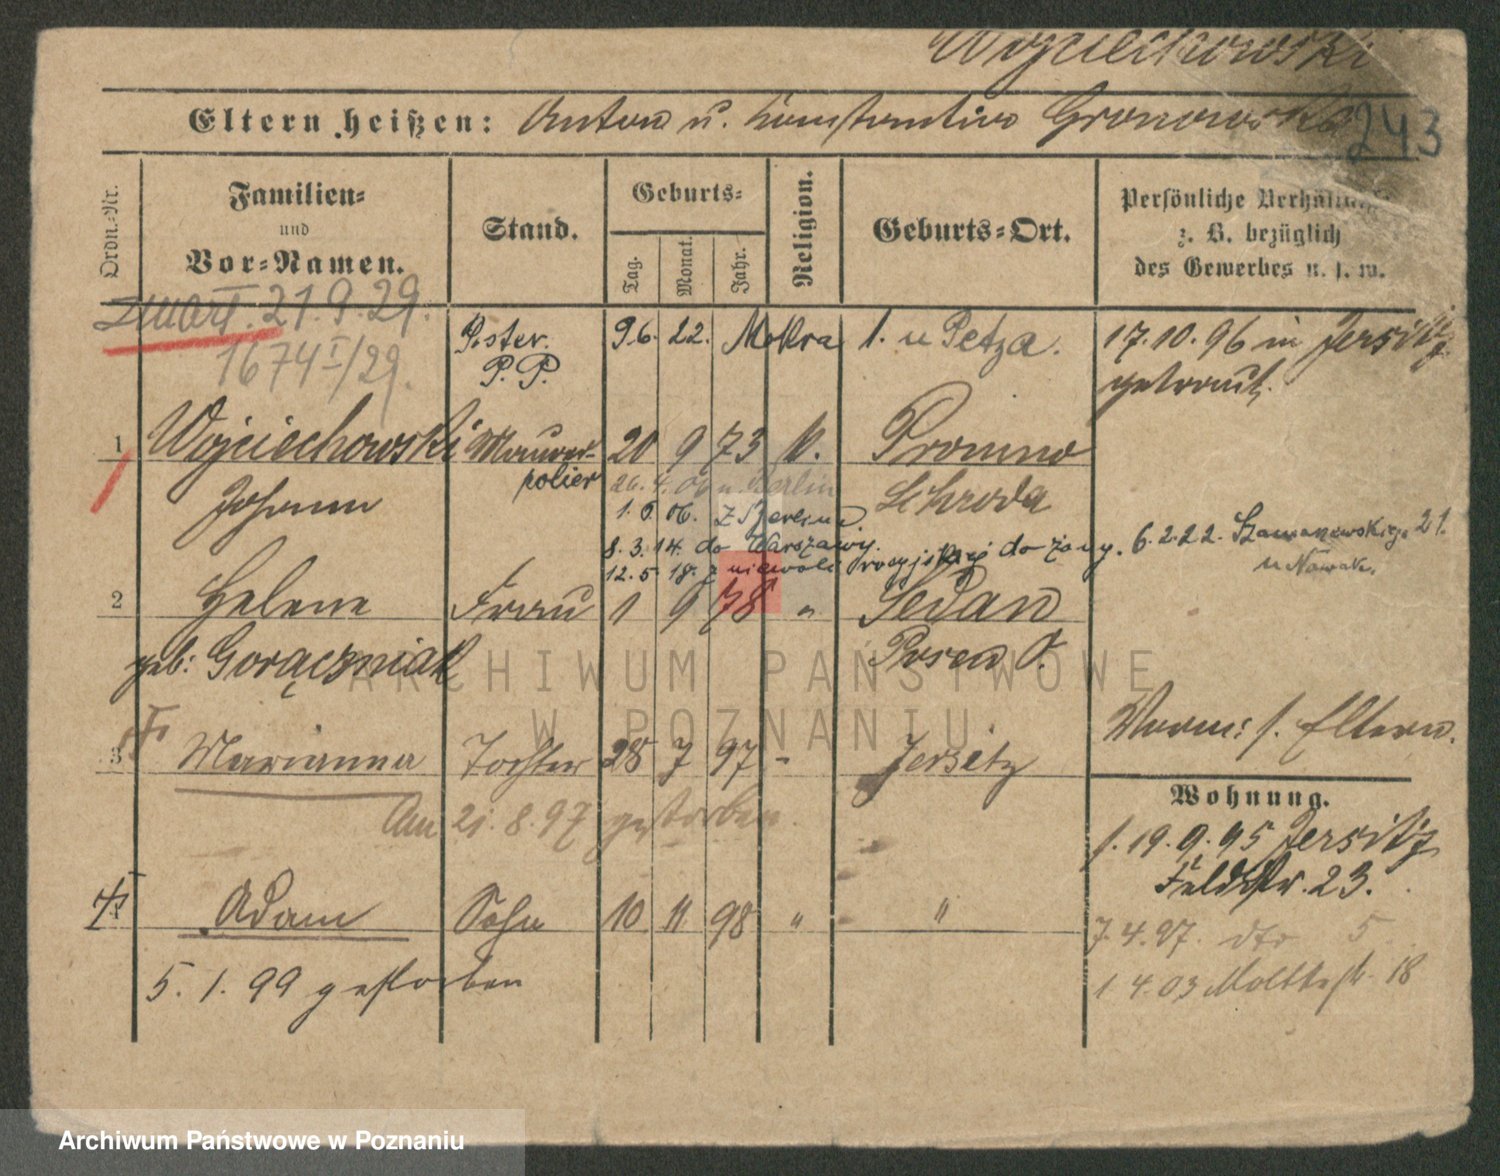 Wojciechowski
Eltern heißen: Anton u. Konstantina Gronowska
243
Ordn.-Nr.
Familien-
und
Vor-Namen.
Stand.
Geburts-
Tag.
Monat.
Jahr.
Religion.
Geburts-Ort.
Persönliche Verhältn
z. B. bezüglich
des Gewerbes u. s. w.
zmarł. 21.9.29.
1674 I/29.
P.ster. 96. 22. Mokra 1. u Petza. 17.10.96 in Jersitz
P.P. getraut.
1 Wojciechowski Maurer- 20 9 73 k. Promno
polier
Johann Schroda
26. 4. 06 n. Berlin
1. 6. 06. z Berlina.
8. 3. 14. do Warszawy.
12. 5. 18. z niewoli rosyjskiej do żony. 6.2.22. 21.
u Nowak.
2 Helene Frau 1 9 78 " Sedan
geb: Gorączniak Posen O.
Vorm: s. Eltern.
3 Marianna Tochter 28 7 97 - Jersitz
Am 21.8.97 gestorben.
Wohnung.
s. 19.9.95 Jersitz
Feldstr. 23.
4 Adam Sohn 10 11 98 " "
7.4.97. dto 5
5. 1. 99 gestorben
1.4.03 Moltkestr. 18
ARCHIWUM PAŃSTWOWE
W POZNANIU
Archiwum Państwowe w Poznaniu